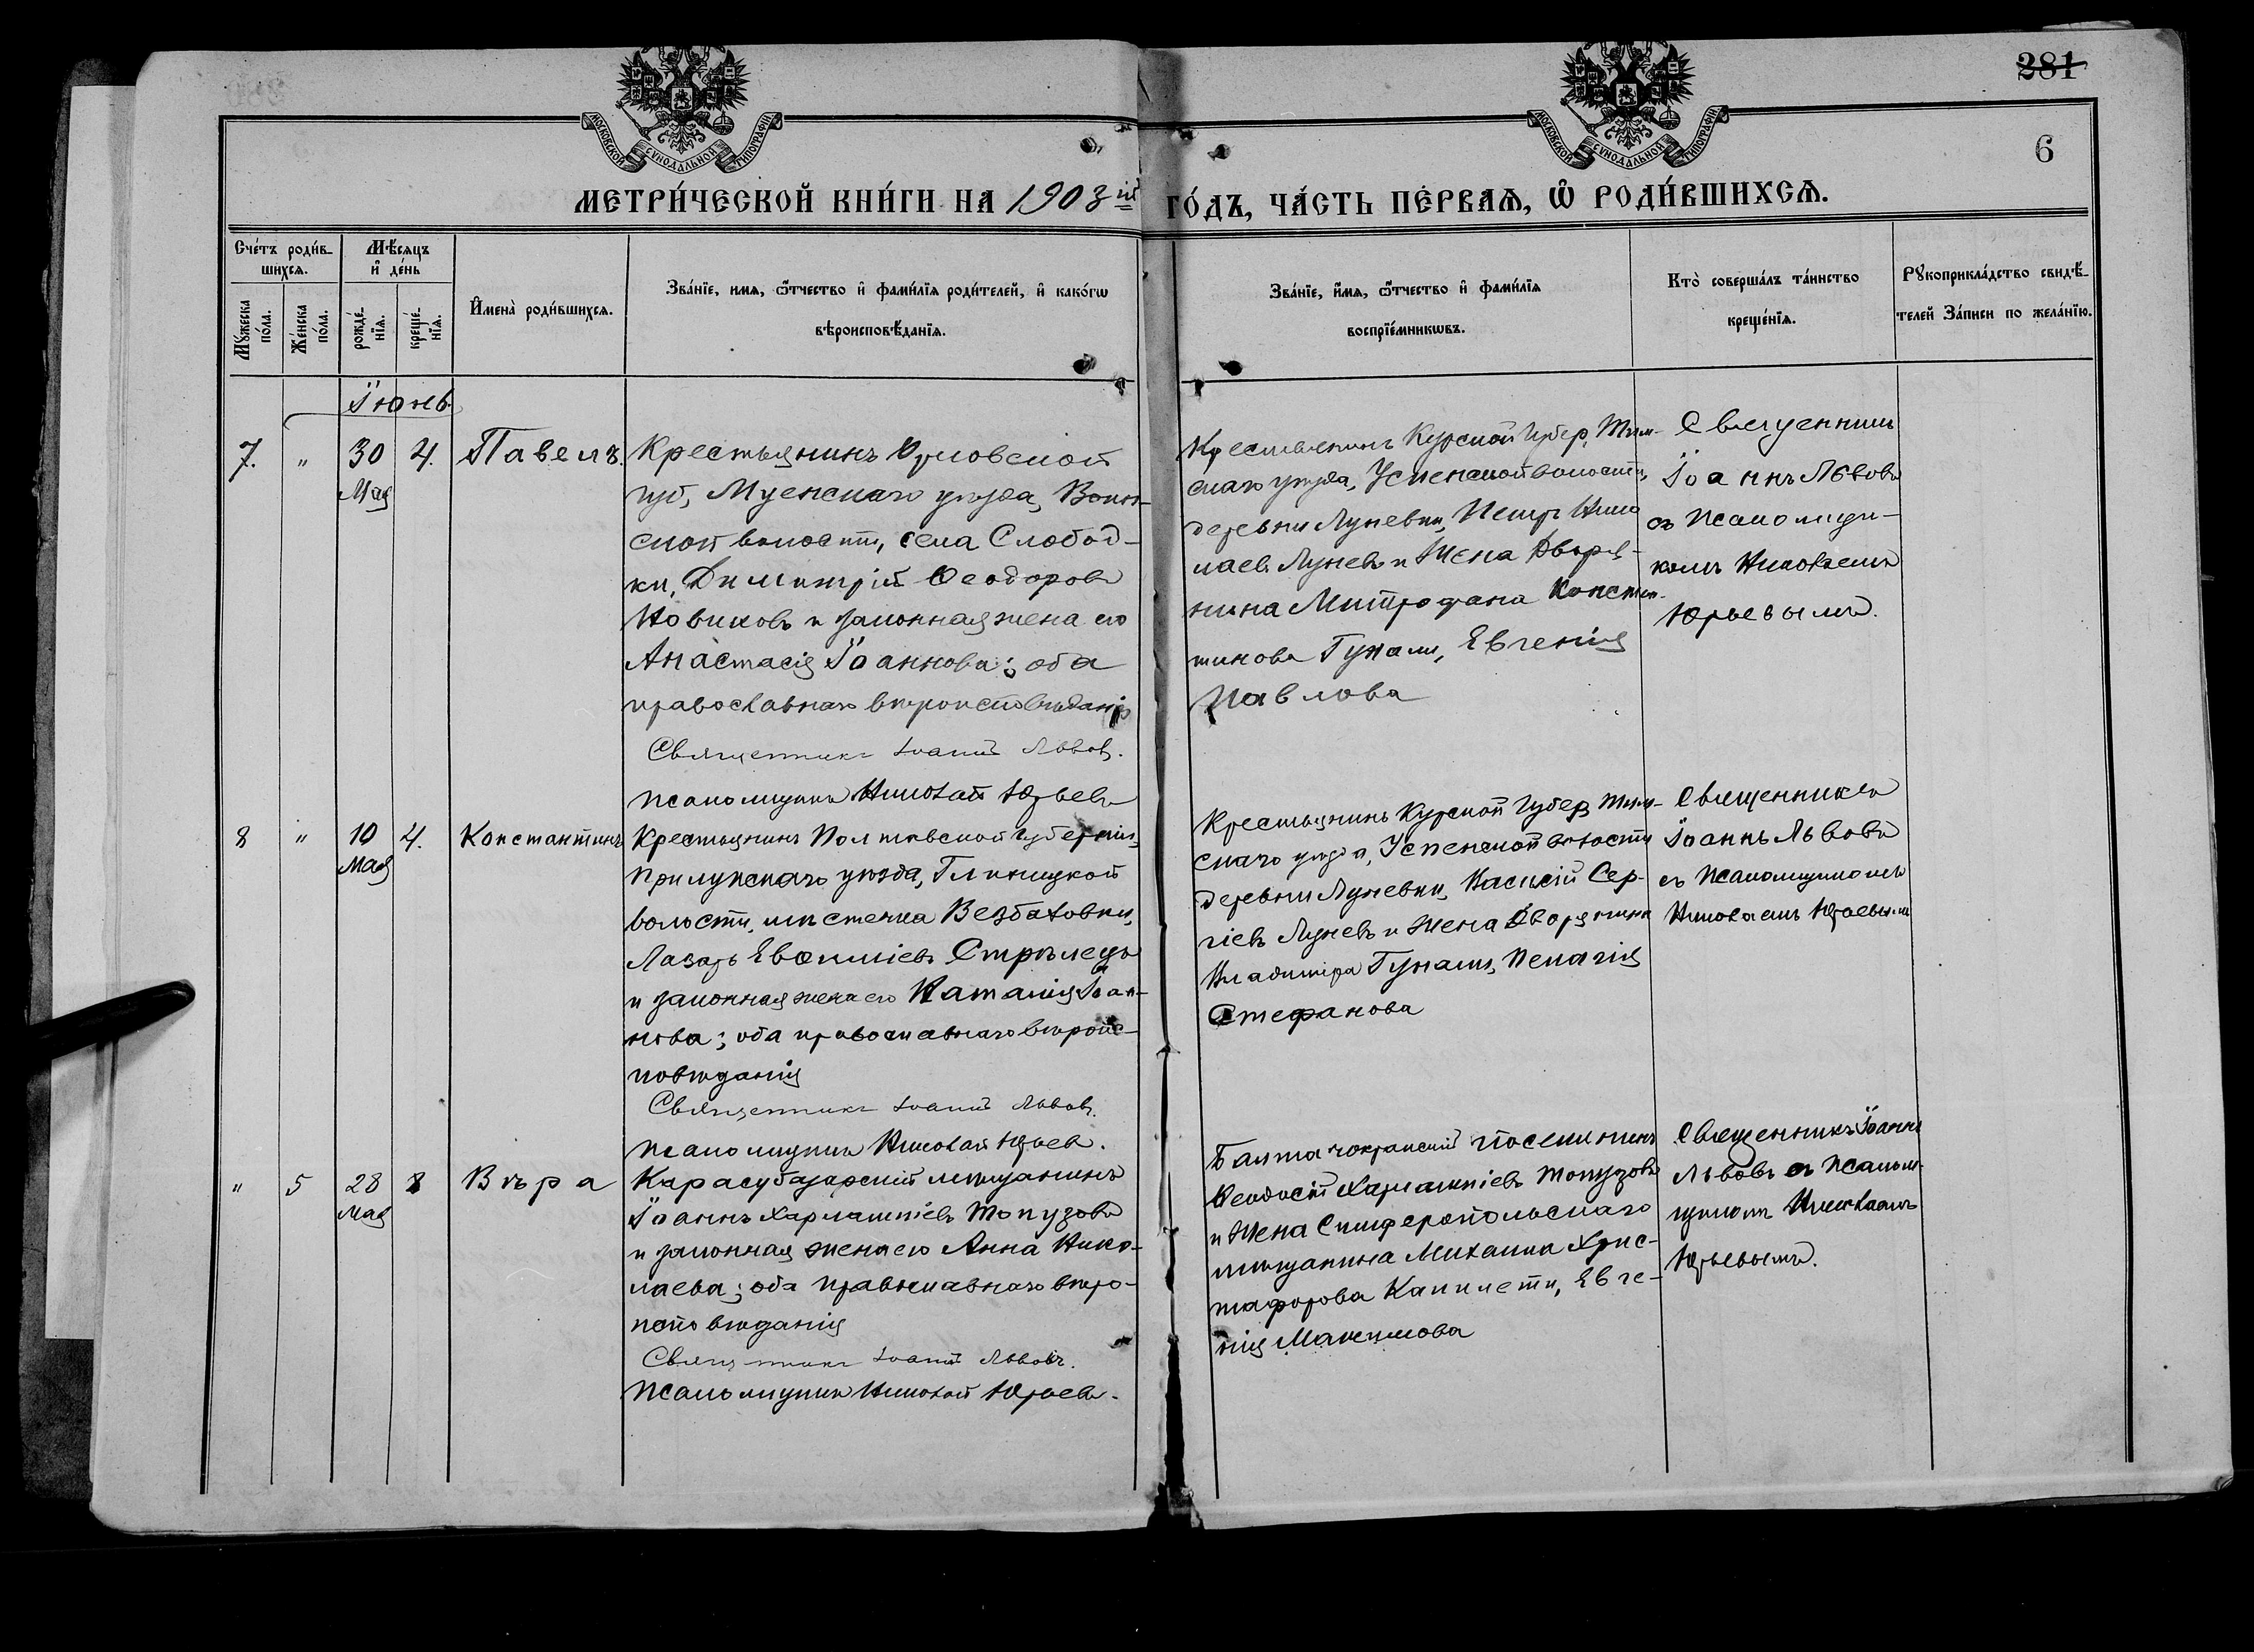 281
6
МОСКОВСКОЙ СѴНОДАЛЬНОЙ ТИПОГРАФІИ
МОСКОВСКОЙ СѴНОДАЛЬНОЙ ТИПОГРАФІИ
МЕТРИ́ЧЕСКОЙ КНИ́ГИ НА 1903 ій ГО́ДЪ, ЧА́СТЬ ПЕ́РВАѦ, Ѡ РОДИ́ВШИХСѦ.
Сче́тъ роди́в-
шихсѧ.
Мꙋжеска по́ла.
Же́нска по́ла.
Мѣ́сѧцъ
и҆ де́нь
рожде́-
нїѧ.
креще́-
нїѧ.
И҆мена̀ роди́вшихсѧ.
Зва́нїе, имѧ, ѻ҆́тчество и҆ фами́лїѧ роди́телей, и҆ како́гѡ
вѣроисповѣ́данїѧ.
Зва́нїе, и҆́мѧ, ѻ҆́тчество и҆ фами́лїѧ
воспрїе́мникѡвъ.
Кто̀ соверша́лъ та́инство
креще́нїѧ.
Рꙋкоприкла́дство свидѣ́-
телей За́писи по жела́нїю.
Іюнь
7. " 30 4. Павелъ.
Мая
Крестьянинъ Орловской
губ, Мценскаго уѣзда, Воин-
ской волости, села Слобод-
ки, Димитрій Ѳеодоровъ
Новиковъ и законная жена его
Анастасія Іоаннова; оба
православнаго вѣроисповѣданія
Священникъ Іоаннъ Львовъ.
Псаломщикъ Николай Юрьевъ
Крестьянинъ Курской Губер, Тим-
скаго уѣзда, Успенской волости,
деревни Луневки, Петръ Нико
лаевъ Луневъ и Жена Дворя-
нина Митрофана Констан-
тинова Гунали, Евгенія
Павлова
Священникъ
Іоаннъ Львовъ
съ Псаломщи-
комъ Николаемъ
Юрьевымъ.
8 " 10 4. Константинъ
Мая
Крестьянинъ Полтавской Губерніи,
Прилукскаго уѣзда, Глинецкой
волости, мѣстечка
Лазарь Евѳиміевъ Стрѣлецъ
и законная жена его Наталія Іоан-
нова; оба православнаго вѣроис-
повѣданія
Священникъ Іоаннъ Львовъ.
Псаломщикъ Николай Юрьевъ.
Крестьянинъ Курской Губер, Тим-
скаго уѣзда, Успенской волости
деревни Луневки, Василій Сер-
гіевъ Луневъ и Жена Дворянина
Владиміра Гунали, Пелагія
Стефанова
Священникъ
Іоаннъ Львовъ
съ Псаломщикомъ
Николаемъ Юрьевымъ
" 5 28 8 Вѣра
Мая
Карасубазарскій мѣщанинъ
Іоаннъ Харлампіевъ Топузовъ
и законная жена его Анна Нико-
лаева; оба православнаго вѣро-
исповѣданія
Священникъ Іоаннъ Львовъ.
Псаломщикъ Николай Юрьевъ.
Балта чокракскій поселянинъ
Ѳеодосій Харлампіевъ Топузовъ
и Жена Симферопольскаго
мѣщанина Михаила Хрис-
тофорова Капилети, Евге-
нія Максимова
Священникъ Іоаннъ
Львовъ съ Псалом-
щикомъ Николаемъ
Юрьевымъ.